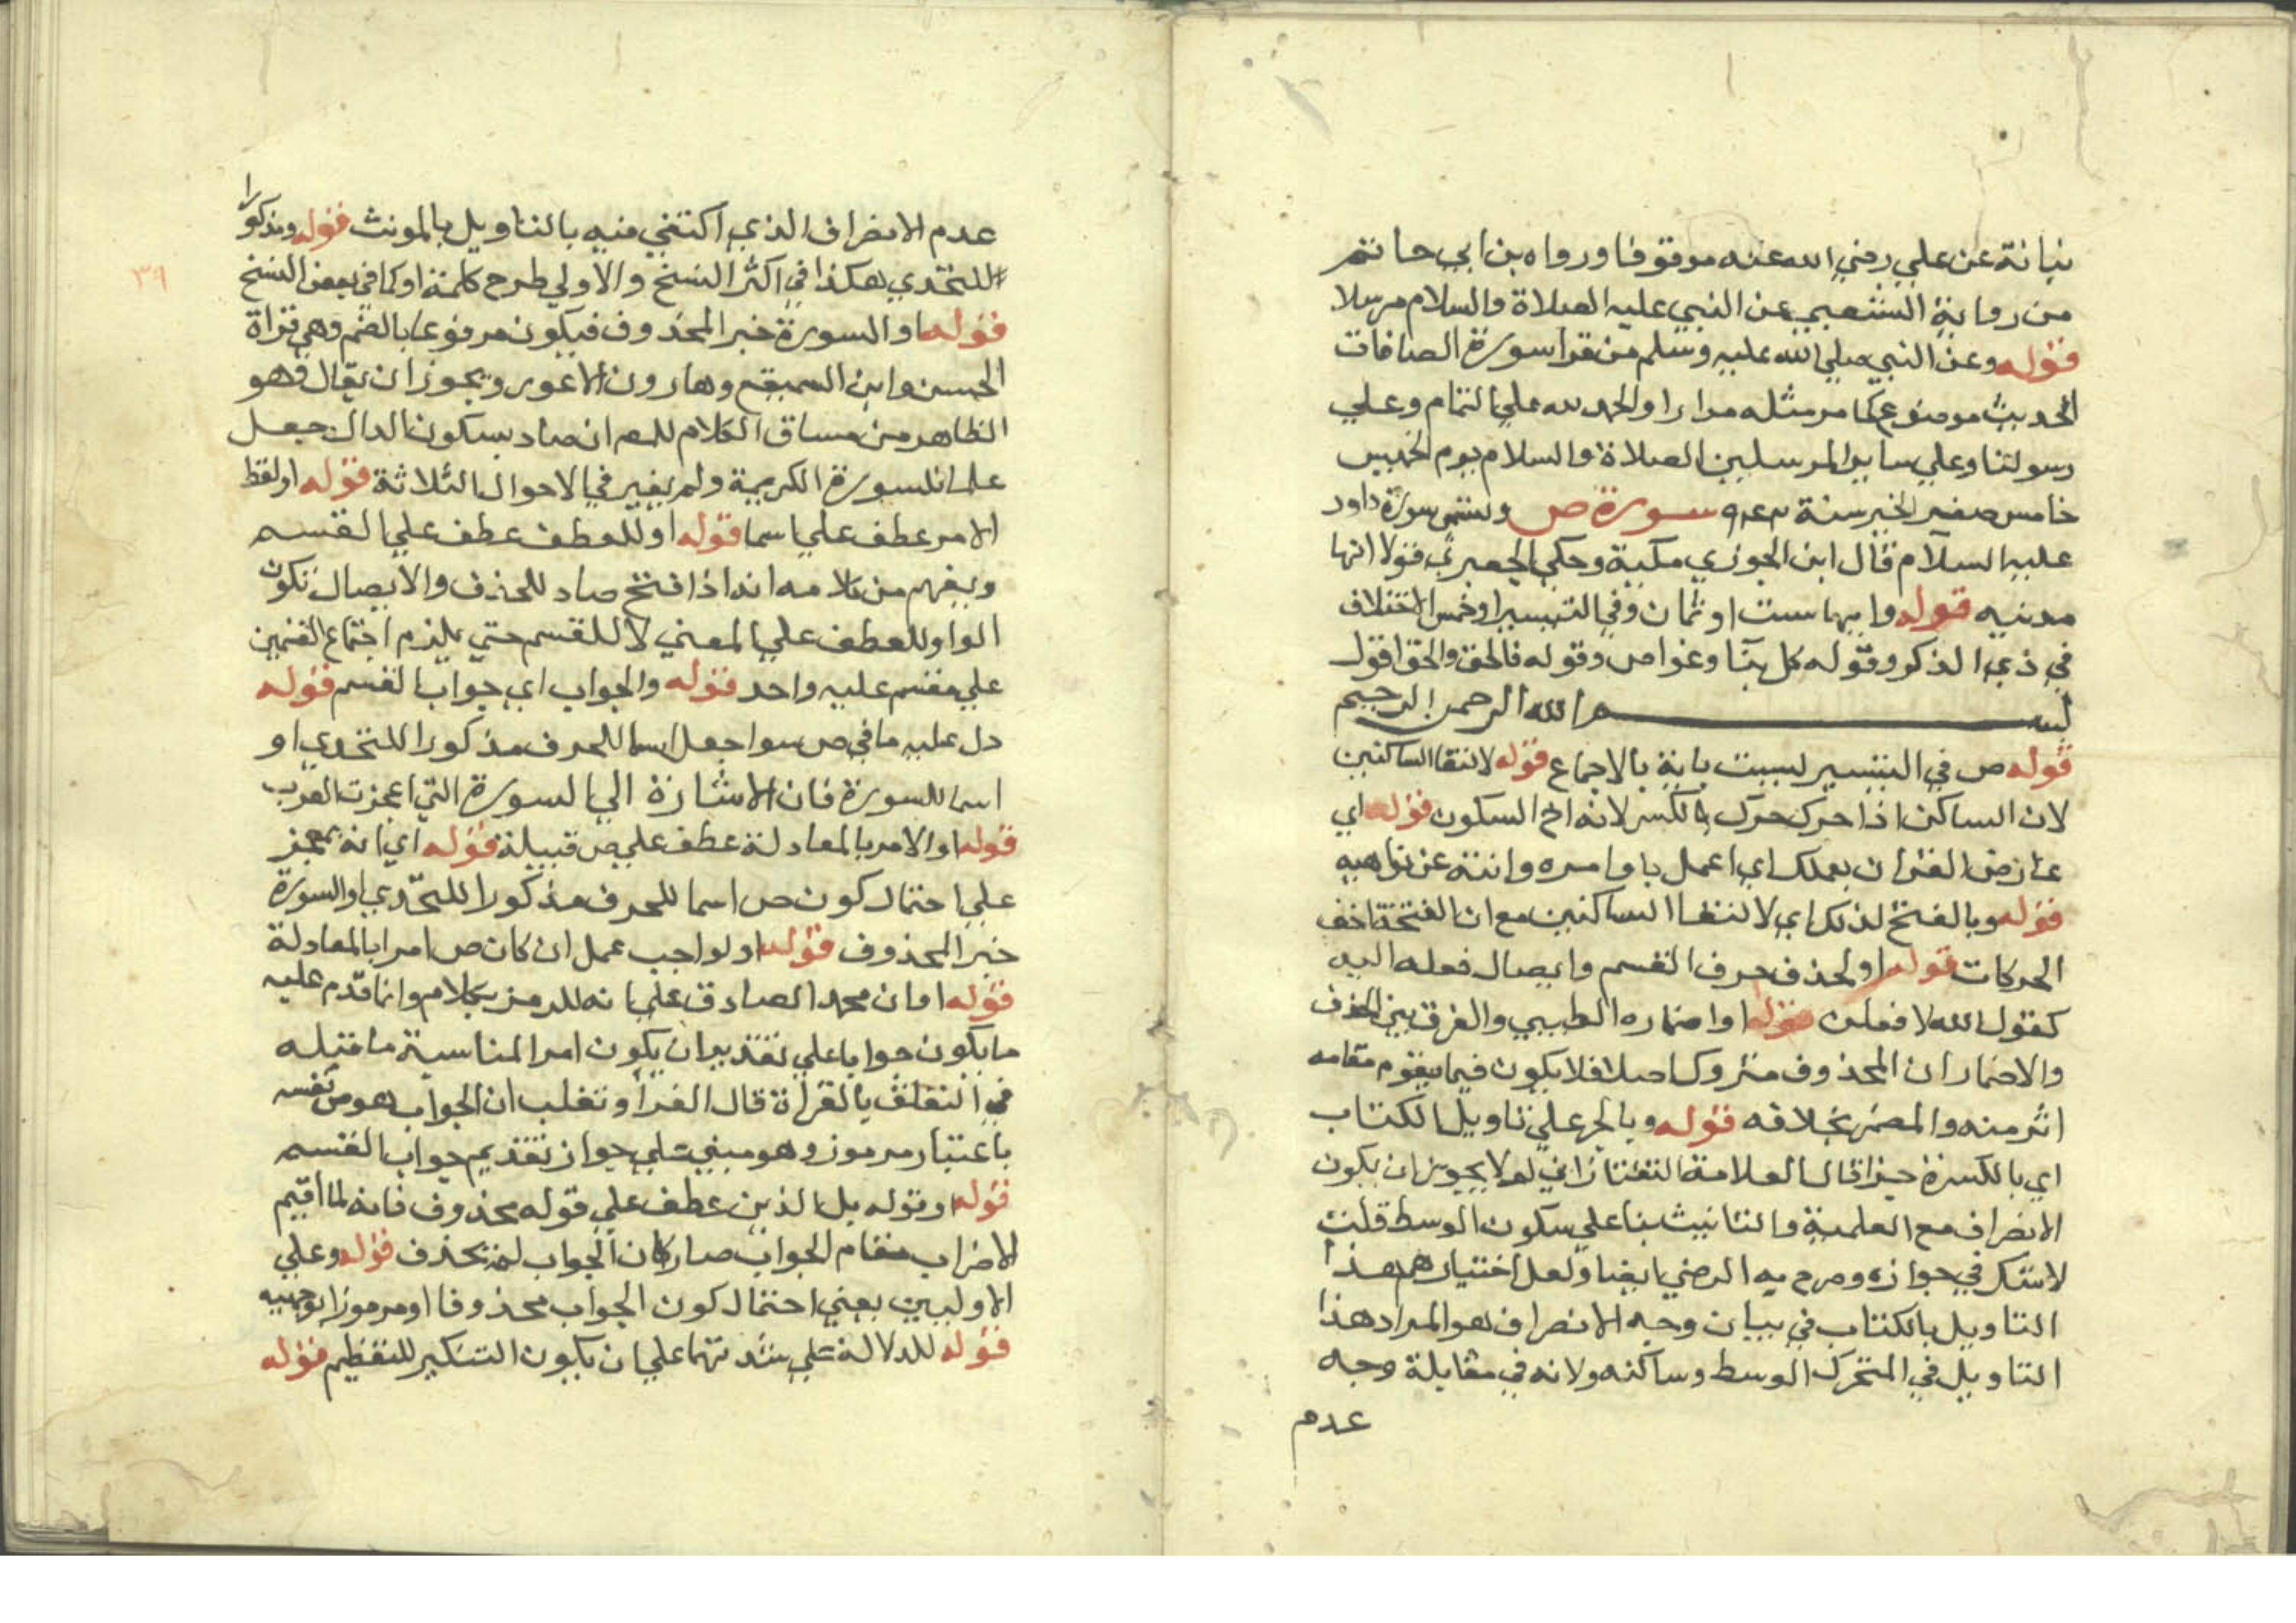 نباتة عن علي رضي الله عنه موقوفا ورواه بن ابي حاتم
من رواية الشعبي عن النبي عليه الصلاة والسلام مرسلا
قوله وعن النبي صلي الله عليه وسلم من قرا سورة الصافات
الحديث موضوع كما مر مثله مرارا والحمد لله علي التمام وعلي
رسولنا وعلي ساير المرسلين الصلاة والسلام يوم الخميس
خامس صفر الخير سنة سورة ص وتسمي سورة داود
عليه السلام قال ابن الجوزي مكية وحكي الجعبري قولا انها
مدنيه قوله وايها ست او ثمان وفي التيسير او خمس الاختلاف
في ذي الذكر وقوله كل بنا وغواص وقوله فالحق والحق اقول
بسم الله الرحمن الرحيم
قوله ص في التيسير ليست باية بالاجماع قوله لالتقا الساكنين
لان الساكن اذا حرك حرك بالكسر لانه اخ السكون قوله اي
عارض القران بعملك اي اعمل باوامره وانته عن نواهيه
قوله وبالفتح لذلك اي لالتقا الساكنين مع ان الفتحة اخف
الحركات قوله او لحذف حرف القسم وايصال فعله اليه
كقول الله لافعلن قوله او اضماره الطيبي والفرق بين الحذف
والاضمار ان المحذوف متروك اصلا فلا يكون فيما يقوم مقامه
اثر منه والمضمر بخلافه قوله وبالجر علي تاويل الكتاب
اي بالكسرة جرا قال العلامة التفتازاني لم لا يجوز ان يكون
الانصراف مع العلمية والتانيث بنا علي سكون الوسط قلت
لا شك في جوازه وصرح به الرضي ايضا ولعل اختيارهم هذا
التاويل بالكتاب في بيان وجه الانصراف هو المراد هذا
التاويل في المتحرك الوسط وساكنه ولانه في مقابلة وجه
عدم
٣٩
عدم الانصراف الذي اكتفي فيه بالتاويل بالمونث قوله ومذكورا
للتحدي هكذا في اكثر النسخ والاولي طرح كلمة او كما في بعض النسخ
قوله او السورة خبر المحذوف فيكون مرفوعا بالضم وهي قراة
الحسن وابن السميقع وهارون الاعور ويجوز ان يقال وهو
الظاهر من مساق الكلام للمص ان صاد بسكون الدال جعل
علما للسورة الكريمة ولم يغير في الاحوال الثلاثة قوله او لفظ
الامر عطف علي اسما قوله او للعطف عطف علي القسم
ويفهم من كلامه انه اذا فتح صاد للحذف والايصال تكون
الواو للعطف علي المعني لا للقسم حتي يلزم اجتماع القسمين
علي مقسم عليه واحد قوله والجواب اي جواب القسم قوله
دل عليه ما في ص سوا جعل اسما للحرف مذكورا للتحدي او
اسما للسورة فان الاشارة الي السورة التي اعجزت العرب
قوله او الامر بالمعادلة عطف علي ص قبيله قوله اي انه لمعجز
علي احتمال كون ص اسما للحرف مذكورا للتحدي او السورة
خبر المحذوف قوله او لواجب عمل ان كان ص امرا بالمعادلة
قوله او ان محمد الصادق علي انه للرمز بكلام وانما قدم عليه
ما يكون جوابا علي تقدير ان يكون امرا لمناسبة ما قبله
في التعلق بالقراة قال الفرا وثعلب ان الجواب هو ص نفسه
باعتبار مرموز وهو مبني علي جواز تقديم جواب القسم
قوله او قوله بل الذين عطف علي قوله محذوف فانه لما اقيم
الاضراب مقام الجواب صار كان الجواب لم يحذف قوله وعلي
الاوليين يعني احتمال كون الجواب محذوفا او مرموزا بوجهيه
قوله للدلالة علي شدتهما علي ان يكون التنكير للتعظيم قوله